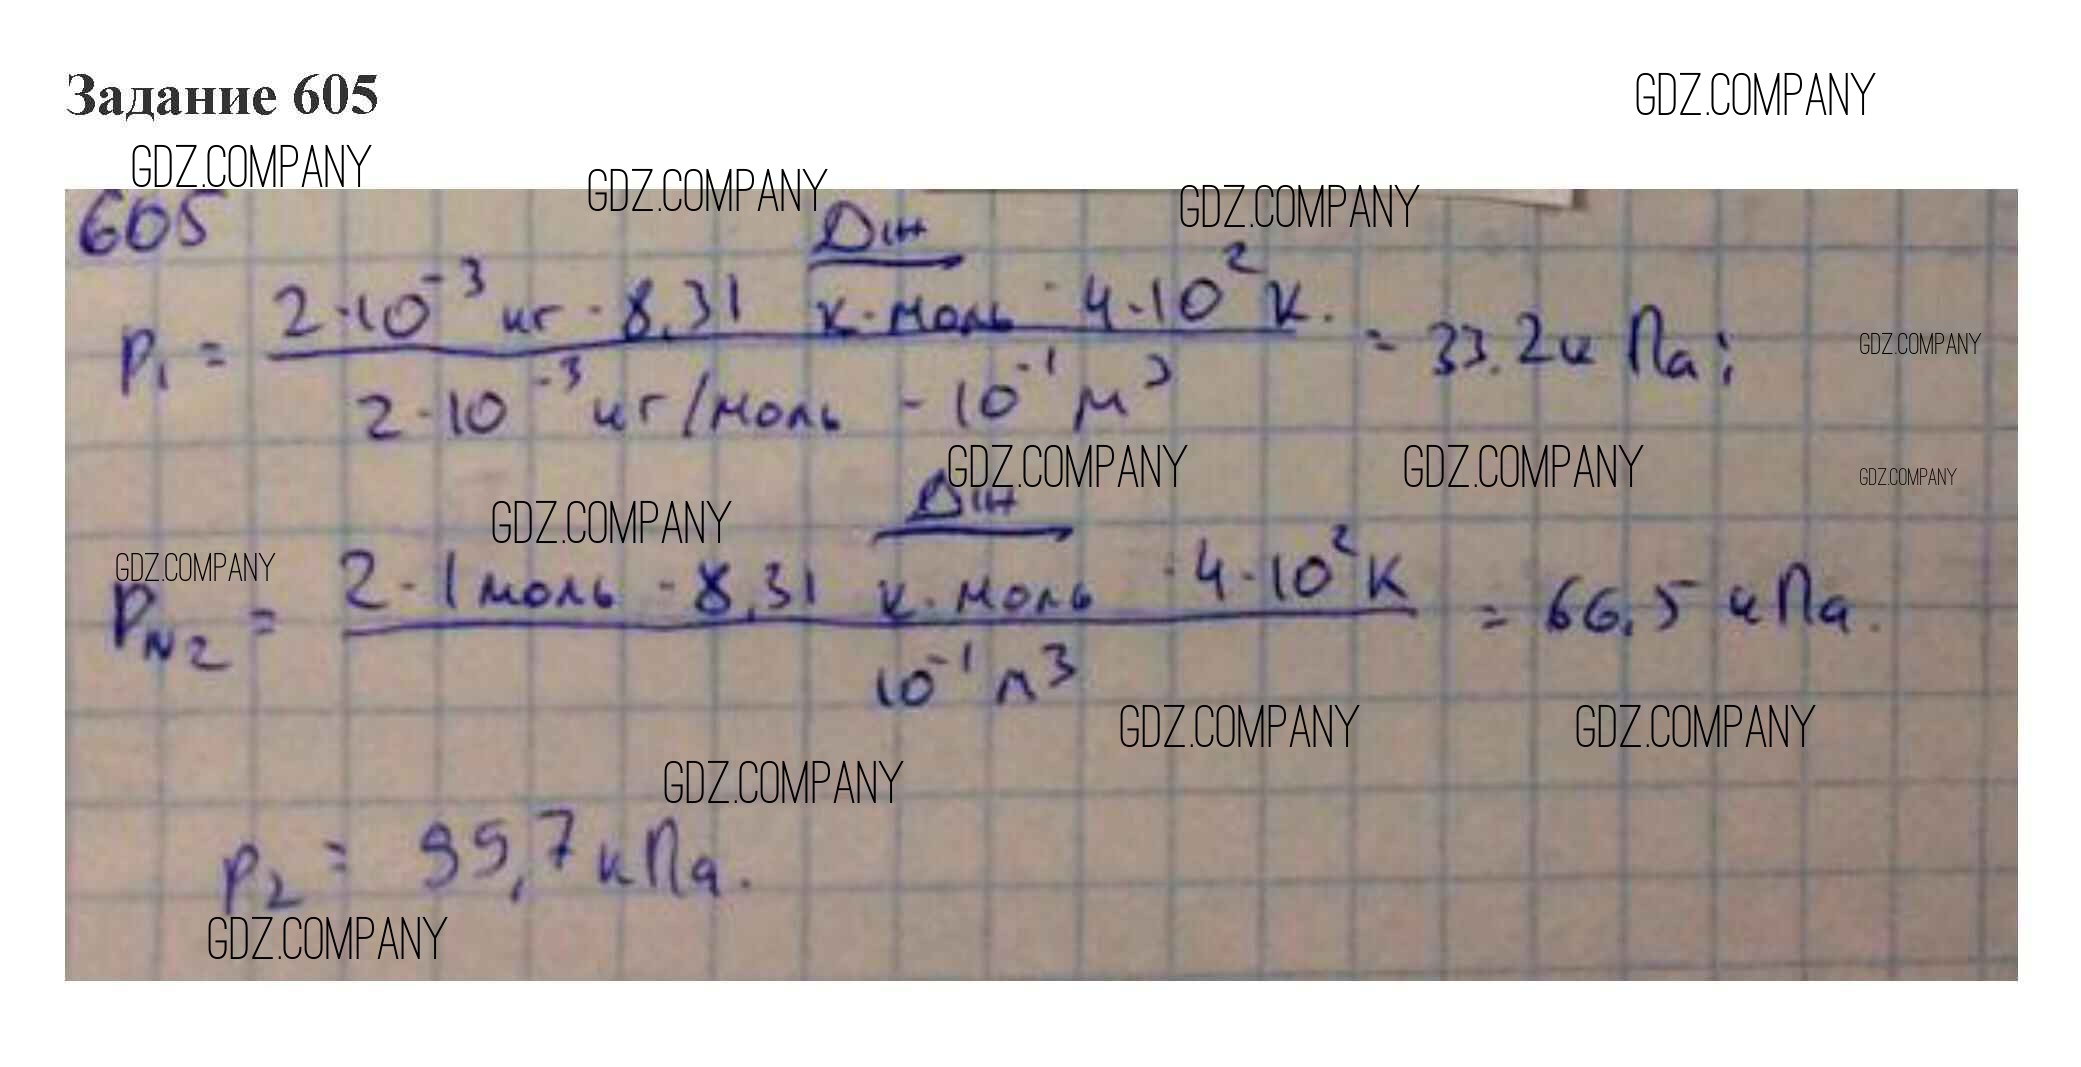 Задание 605
GDZ.COMPANY
GDZ.COMPANY
GDZ.COMPANY
GDZ.COMPANY
605
Дж
2·10⁻³ кг · 8,31 К·моль · 4·10² К.
P₁ = = 33.2 кПа;
GDZ.COMPANY
2·10⁻³ кг/моль · 10⁻¹ м³
GDZ.COMPANY
GDZ.COMPANY
GDZ.COMPANY
Дж
GDZ.COMPANY
GDZ.COMPANY
2·1 моль · 8,31 К·моль · 4·10² К
P_N₂ = = 66,5 кПа.
10⁻¹ м³
GDZ.COMPANY
GDZ.COMPANY
GDZ.COMPANY
P₂ = 99,7 кПа.
GDZ.COMPANY